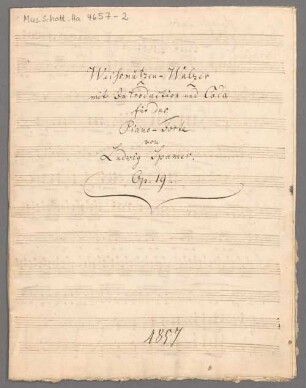 Mus. Schott. Ha 4657-2
Weißmützen-Walzer
mit Introduction und Coda
für das
Piano-Forte
von
Ludwig Spamer.
Op. 19.
4857